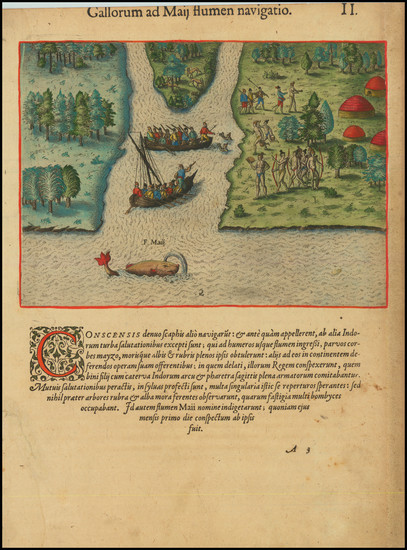 Gallorum ad Maij flumen navigatio. II.
F. Maij
2
CONSCENSIS denuo scaphis aliò navigarūt: & ante quàm appellerent, ab alia Indo-
rum turba salutationibus excepti sunt; qui ad humeros usque flumen ingressi, parvos cor-
bes mayzo, morisque albis & rubris plenos ipsis obtulerunt: alijs ad eos in continentem de-
ferendos operam suam offerentibus; in quem delati, illorum Regem conspexerunt, quem
bini filij cum caterva Indorum arcu & pharetra sagittis plena armatorum comitabantur.
Mutuis salutationibus peractis, in sylvas profecti sunt, multa singularia istic se reperturos sperantes: sed
nihil præter arbores rubra & alba mora ferentes observarunt, quarum fastigia multi bombyces
occupabant. Id autem flumen Maii nomine indigetarunt; quoniam ejus
mensis primo die conspectum ab ipsis
fuit.
A 3